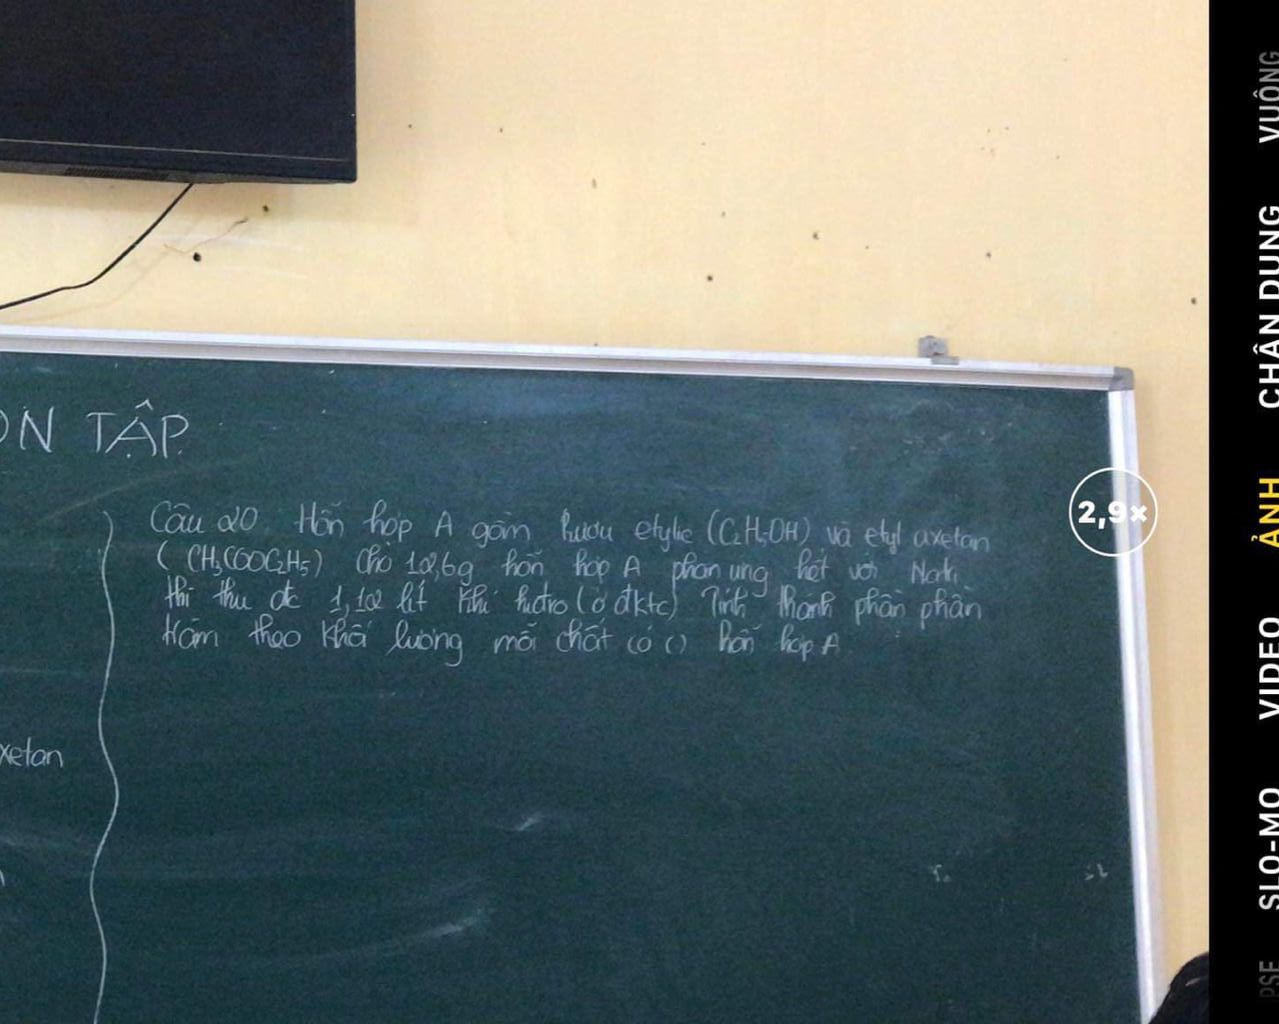 ÔN TẬP
Câu 20. Hỗn hợp A gồm rượu etylic (C2H5OH) và etyl axetan
(CH3COOC2H5) Cho 12,6g hỗn hợp A phản ứng hết với Natri
thì thu đc 1,12 lít khí hidro (ở đktc) Tính thành phần phần
trăm theo khối lượng mỗi chất có () hỗn hợp A
xetan
2,9×
VUÔNG
CHÂN DUNG
ẢNH
VIDEO
SLO-MO
PSE